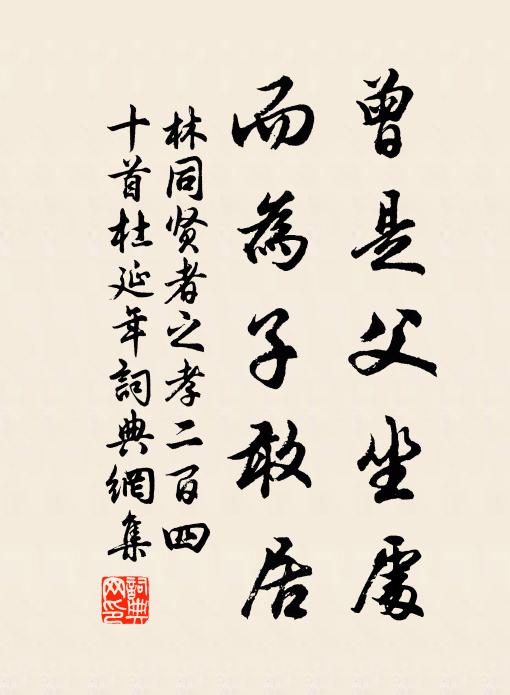 曾是父坐處
而為子敢居
林同贤者之孝二百四
十首杜延年詞典網集
詞典网印